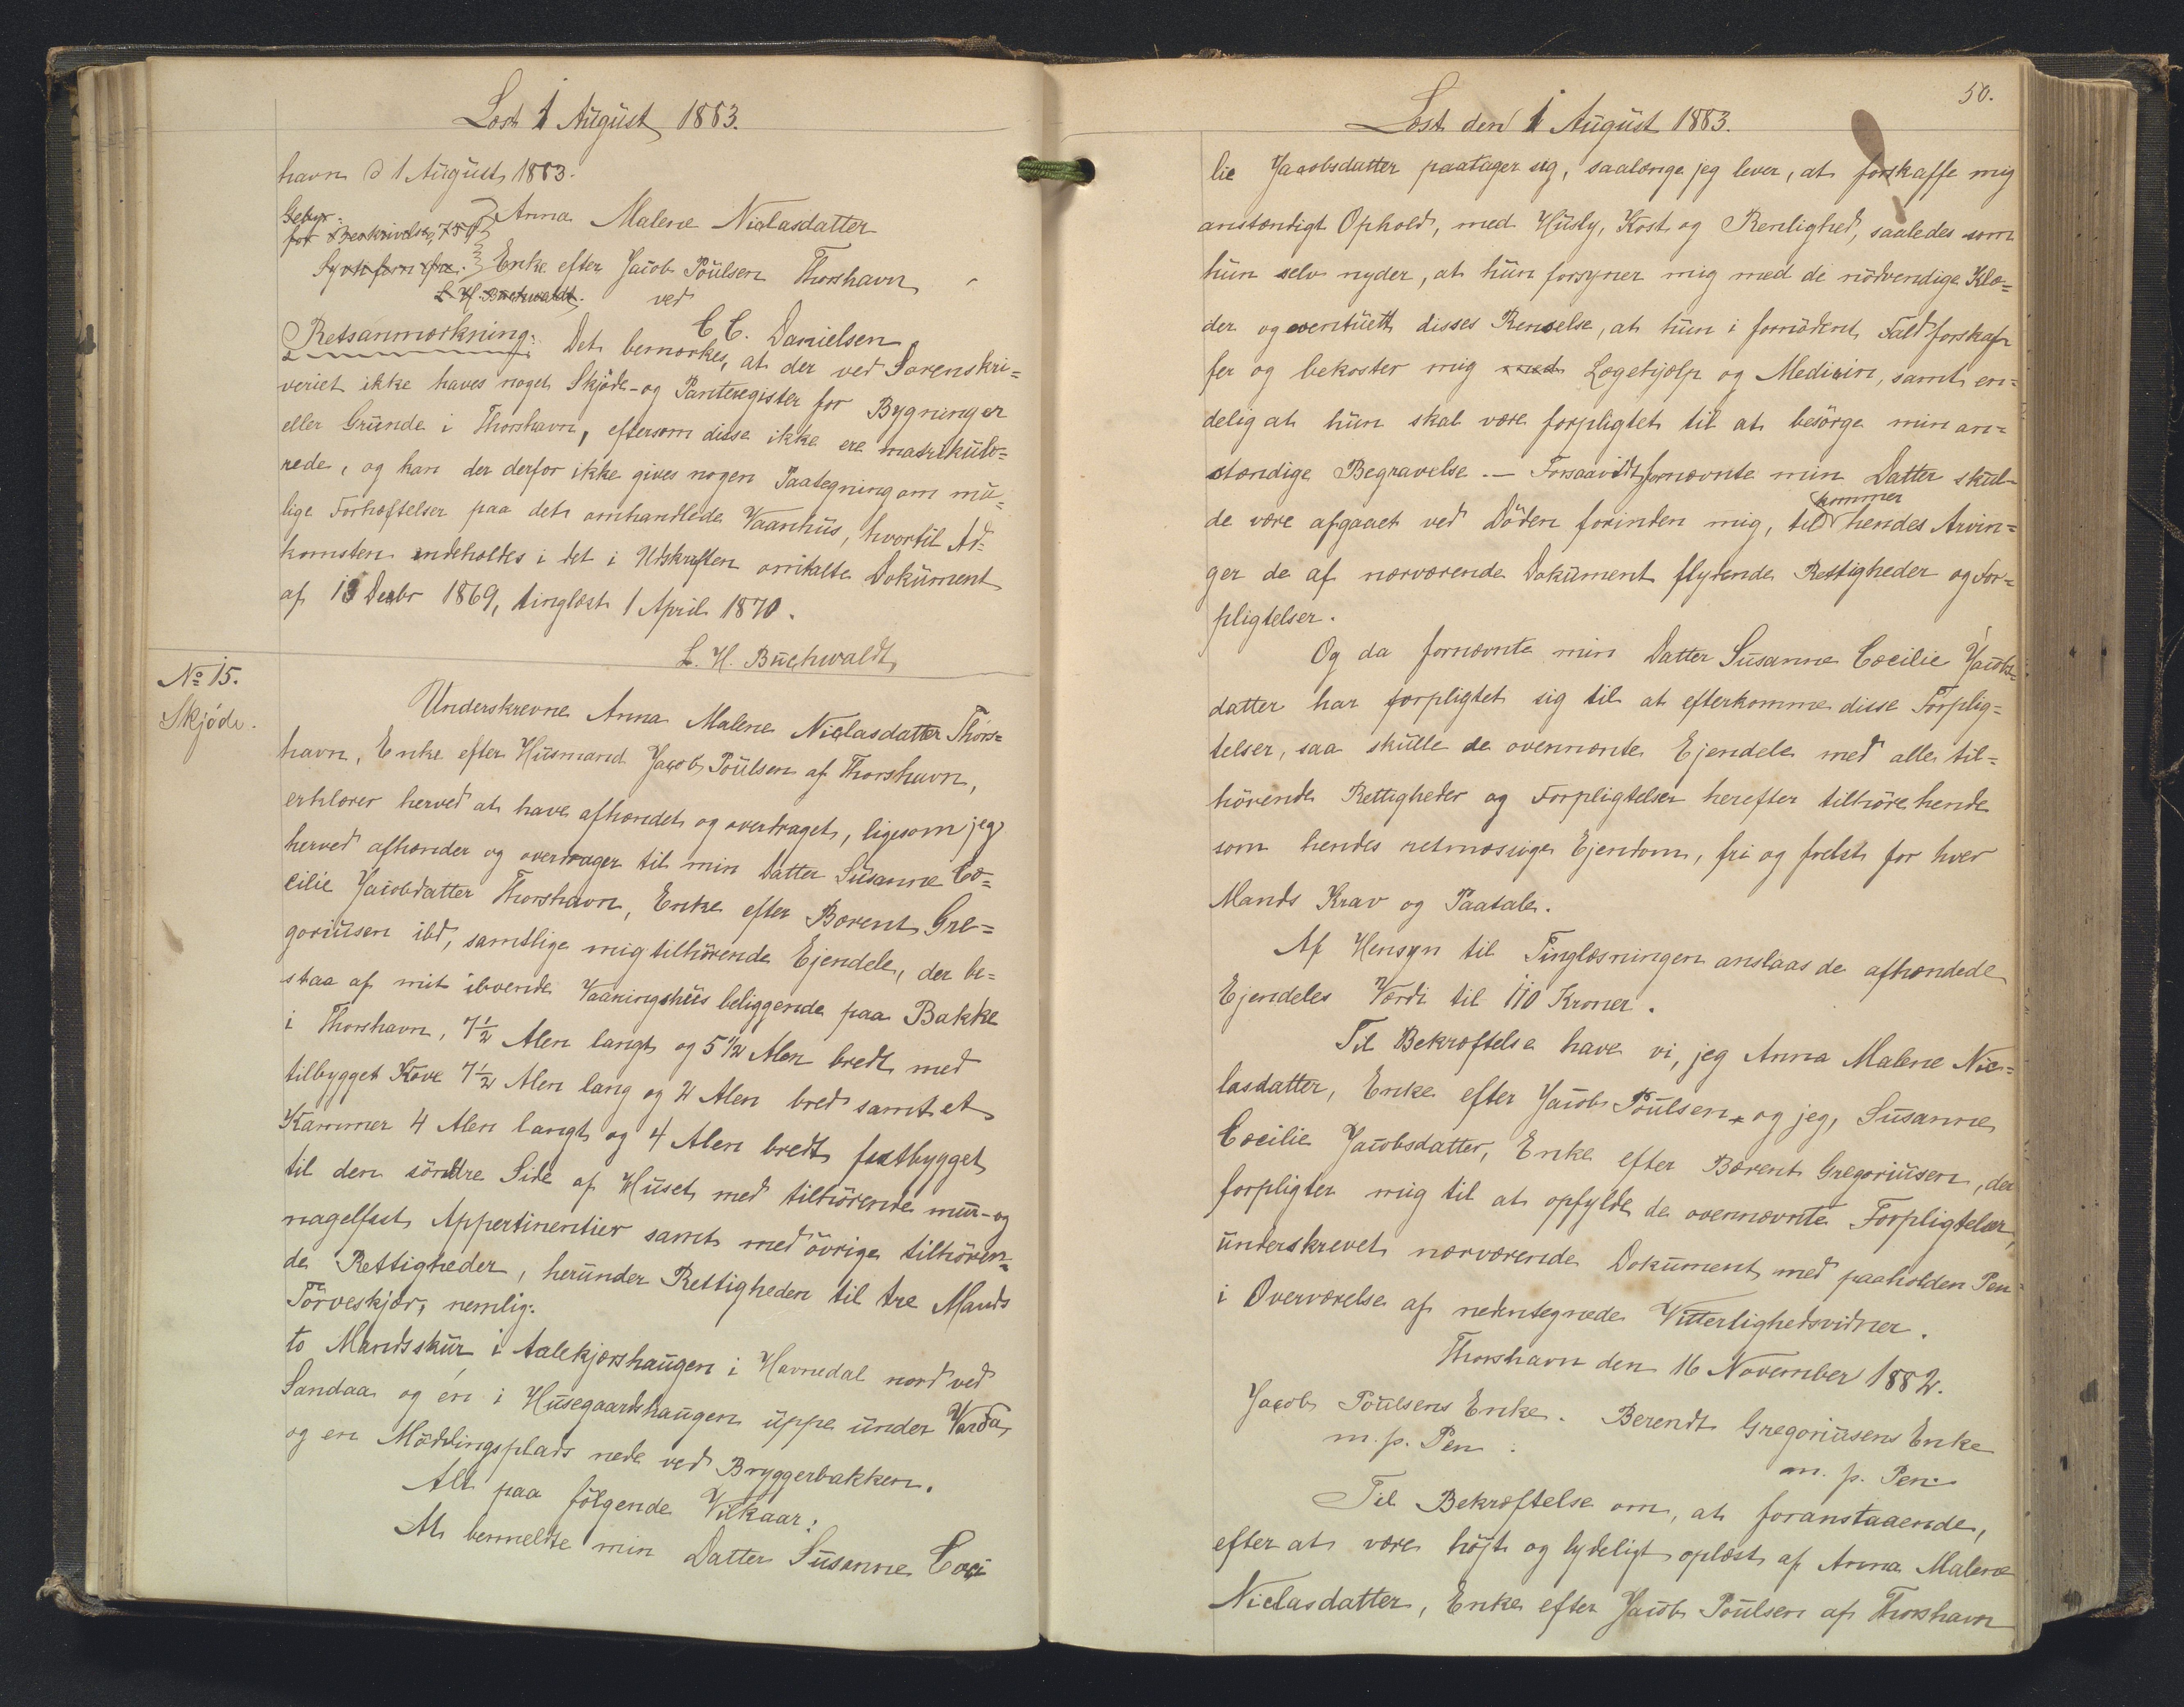 Læst 1 August 1883.
havn d 1 August 1883.
Gebyr:
for Beskrivelse, 75 Ø
Anna Malene Niclasdatter
Enke efter Jacob Poulsen Thorshavn
L. H. Buchwaldt. ved
C. C. Danielsen
Retsanmærkning: Det bemærkes, at der ved Sorenskri=
veriet ikke haves noget Skjøde- og Panteregister for Bygninger
eller Grunde i Thorshavn, eftersom disse ikke ere matrikule=
rede, og kan der derfor ikke gives nogen Paategning om mu=
lige Forhæftelser paa det omhandlede Vaanhus, hvortil Ad=
komsten indeholdes i det i Udskriften omtalte Dokument
af 13 Decbr 1869, tinglæst 1 April 1870.
L. H. Buchwaldt
No 15.
Skjøde.
Underskrevne Anna Malene Niclasdatter Thors=
havn, Enke efter Husmand Jacob Poulsen af Thorshavn,
erklærer herved at have afhændet og overdraget, ligesom jeg
herved afhænder og overdrager til min Datter Susanne Cæ=
cilie Jacobdatter Thorshavn, Enke efter Bærent Gre=
goriusen ibd, samtlige mig tilhørende Ejendele, der be=
staa af mit iboende Vaaningshus beliggende paa Bakke
i Thorshavn, 7 1/2 Alen langt og 5 1/2 Alen bredt med
tilbygget Kove 7 1/2 Alen lang og 2 Alen bred samt et
Kammer 4 Alen langt og 4 Alen bredt fastbygget
til den søndre Side af Huset med tilhørende mur- og
nagelfast Appertinentier samt med øvrige tilhøren=
de Rettigheder, herunder Rettigheden til tre Mands
Tørveskjær, nemlig:
to Mandsskur i Aalekjærshaugen i Havnedal nord ved
Sandaa og én i Husegaardshaugen uppe under Varda
og en Møddingsplads nede ved Bryggerbakken.
Alt paa følgende Vilkaar:
At bemeldte min Datter Susanne Cæci
50.
Læst den 1 August 1883.
lie Jacobsdatter paatager sig, saalænge jeg lever, at forskaffe mig
anstændigt Ophold, med Husly, Kost og Renlighed, saaledes som
hun selv nyder, at hun forsyner mig med de nödvendige Klæ=
der og eventuelt disses Renselse, at hun i fornødent Fald forskaf
fer og bekoster mig med Lægehjælp og Medicin, samt en=
delig at hun skal være forpligtet til at besörge min an=
stændige Begravelse. — Forsaavidt fornævnte min Datter skul-
de være afgaaet ved Döden forinden mig, til kommer hendes Arvin=
ger de af nærværende Dokument flydende Rettigheder og For=
pligtelser.
Og da fornævnte min Datter Susanne Cæcilie Jacobs=
datter har forpligtet sig til at efterkomme disse Forplig=
telser, saa skulle de ovennævnte Ejendele med alle til=
hörende Rettigheder og Forpligtelser herefter tilhöre hende
som hendes retmæssige Ejendom, fri og frelst for hver
Mands Krav og Paatale.
Af Hensyn til Tinglæsningen anslaas de afhændede
Ejendeles Værdi til 110 Kroner.
Til Bekræftelse have vi, jeg Anna Malene Nic=
lasdatter, Enke efter Jacob Poulsen, og jeg, Susanne
Cæcilie Jacobsdatter, Enke efter Bærent Gregoriusen, der
forpligter mig til at opfylde de ovennævnte Forpligtelser,
underskrevet nærværende Dokument med paaholden Pen
i Overværelse af nedentegnede Vitterlighedsvidner.
Thorshavn den 16 November 1882.
Jacob Poulsens Enke. Berendt Gregoriusens Enke
m. p. Pen. m. p. Pen.
Til Bekræftelse om, at foranstaaende,
efter at være höjt og lydeligt oplæst af Anna Malene
Niclasdatter, Enke efter Jacob Poulsen af Thorshavn